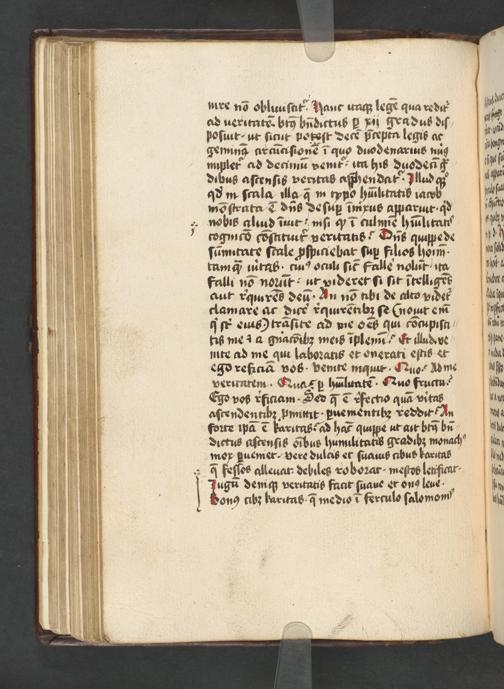 iure nō obliuiscit᷑. Hanc itaq̢ legē qua redit᷑
ad veritatē. btūs bn̄dictus p xii gradus dis
posuit. ut sicut potest decē p̄cepta legis ac
geminā circūcisionē ī quo duodenarius nūs
implet᷑ ad decimū venit᷑. ita his duodecī g̊
dibus ascensis veritas app̄hendat᷑. Illud qq̢
qd̄ in scala illa q̄ in typo hūilitatis iacob
mōstrata ē dn̄s desup īnixus apparuit. qd̄
nobis aliud īnuit᷑. nisi qd̄ ī culmīe hūilitatis
cognicō cōstituit᷑ veritatis? Dn̄s quippe de
sūmitate scale p̄spiciebat sup filios hoīm.
tamq̄ vītas. cui᷒ oculi sic̄ falle᷑ nolūt. ita
falli nō norūt. ut videret si sit ītelligēs
aut r̄quirēs deū. An nō tibi de alto videt᷑
clamare ac dice᷑ r̄quirentibz se (nouit em̄
q̄ sr̄ eius) trāsite ad me om̄s qui cōcupisci
tis me ⁊ a gn̄acōibz meis īplemī. Et illud. ve
nite ad me qui laboratis et onerati estis et
ego reficiā vos. venite inquit. Quo? Ad me
veritatem. Qua? p hūilitatē. Quo fructu?
Ego vos r̄ficiam. Sed q̄ ē r̄fectio quā vītas
ascendentibz p̄mittit. p̄uenientibz reddit? An
forte ipā ē karitas? ad hāc quippe ut ait btūs bn̄
dictus ascensis oībus humilitatis gradibz monach᷒
mox p̄ueniet. vere dulcis et suauis cibus karitas
q̄ fessos alleuat. debiles roborat. mestos letificat.
Iugū deniq̢ veritatis facit suaue et on᷒ leue.
Bonus cibz karitas. q̄ medio ī ferculo salomonis